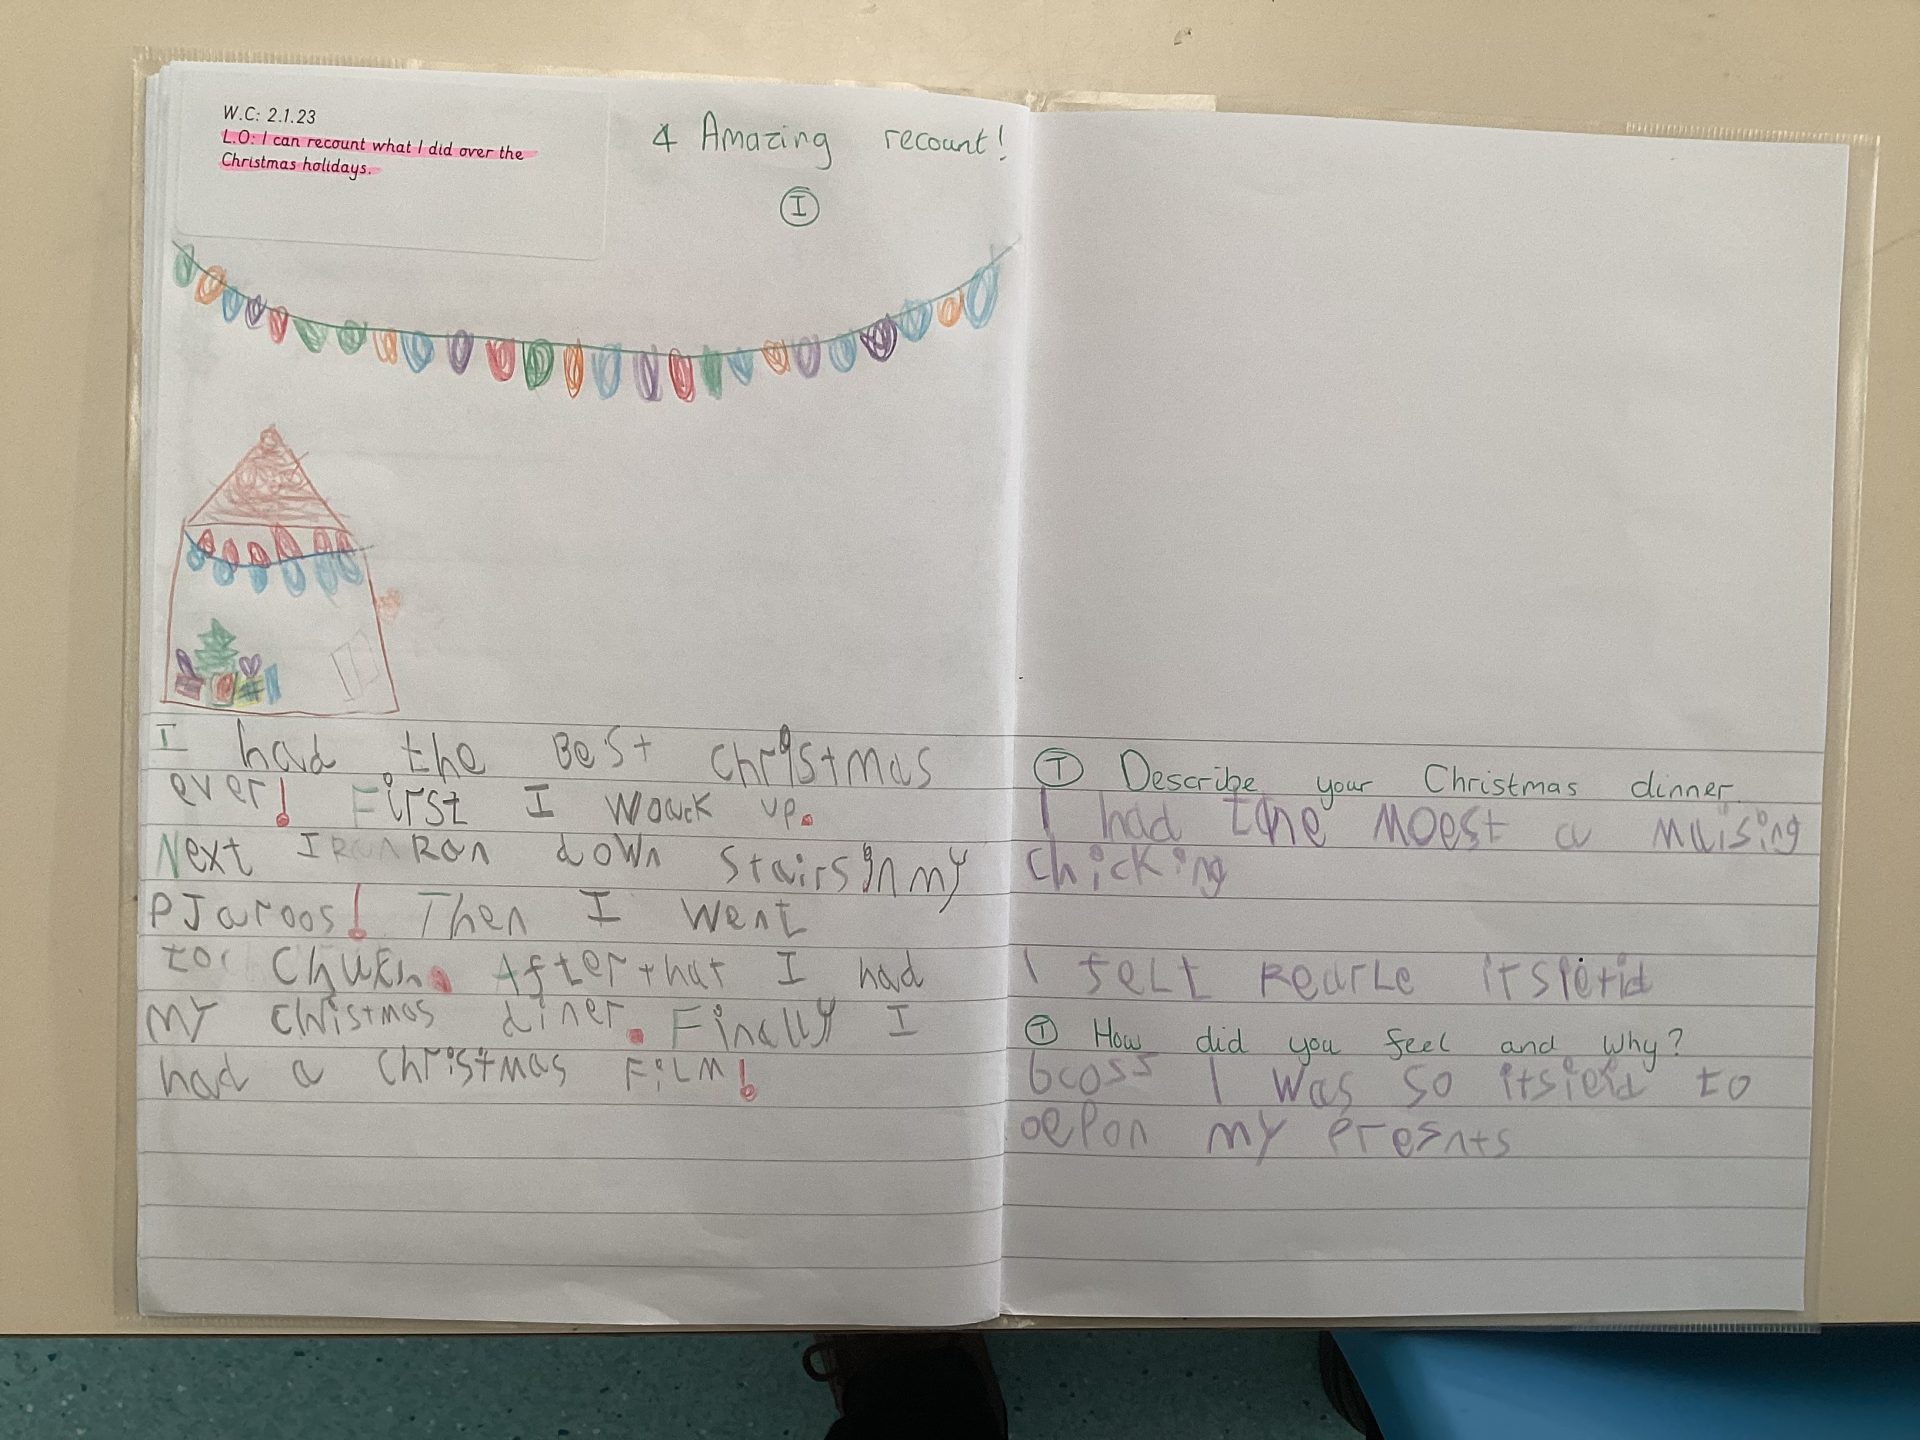 W.C: 2.1.23
L.O: I can recount what I did over the
Christmas holidays.
4 Amazing recount!
I
I had the BesT christmas
ever! First I Wouck up.
Next I RanRan down Stairs in my
PJaroos! Then I went
to Chuch. After that I had
my christmas diner. Finally I
had a christmas FiLM!
T Describe your Christmas dinner.
I had the Moest a Maising
chicking
I feLt Rearle itsietid
T How did you feel and why?
bcoss I was so itsieid to
oepon my Presnts